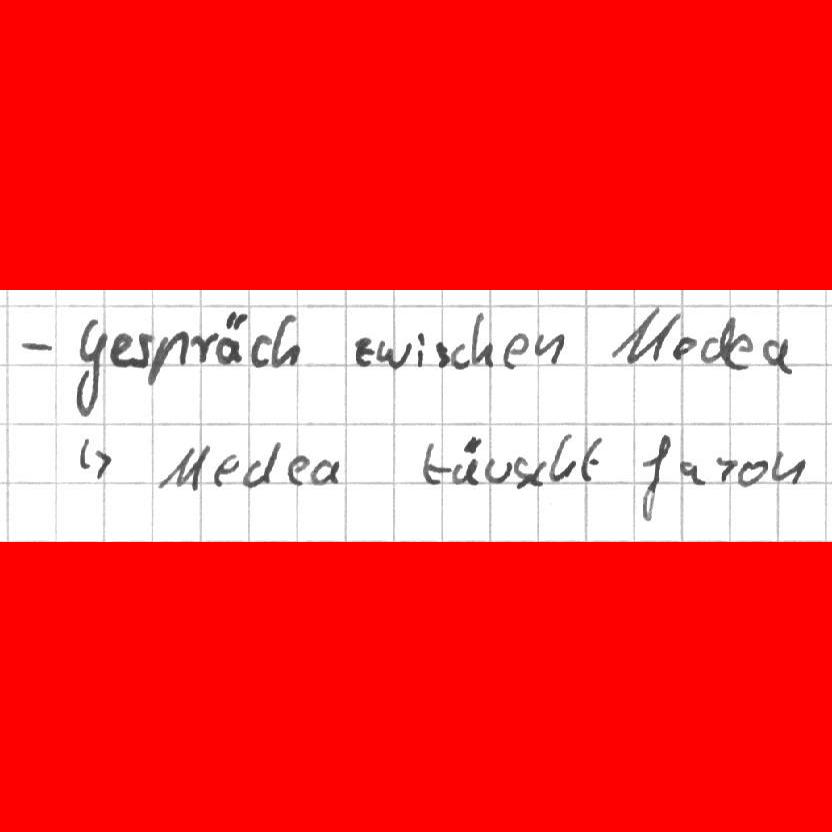 - Gespräch zwischen Medea
↳ Medea täuscht Jason